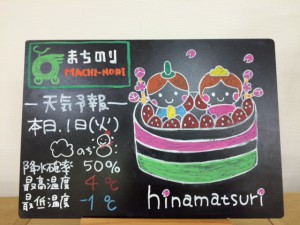 まちのり
MACHI-NORI
ー天気予報ー
本日、1日(ｿ)
のち
降水確率 50%
最高温度 4℃
最低温度 -1℃
hinamatsuri